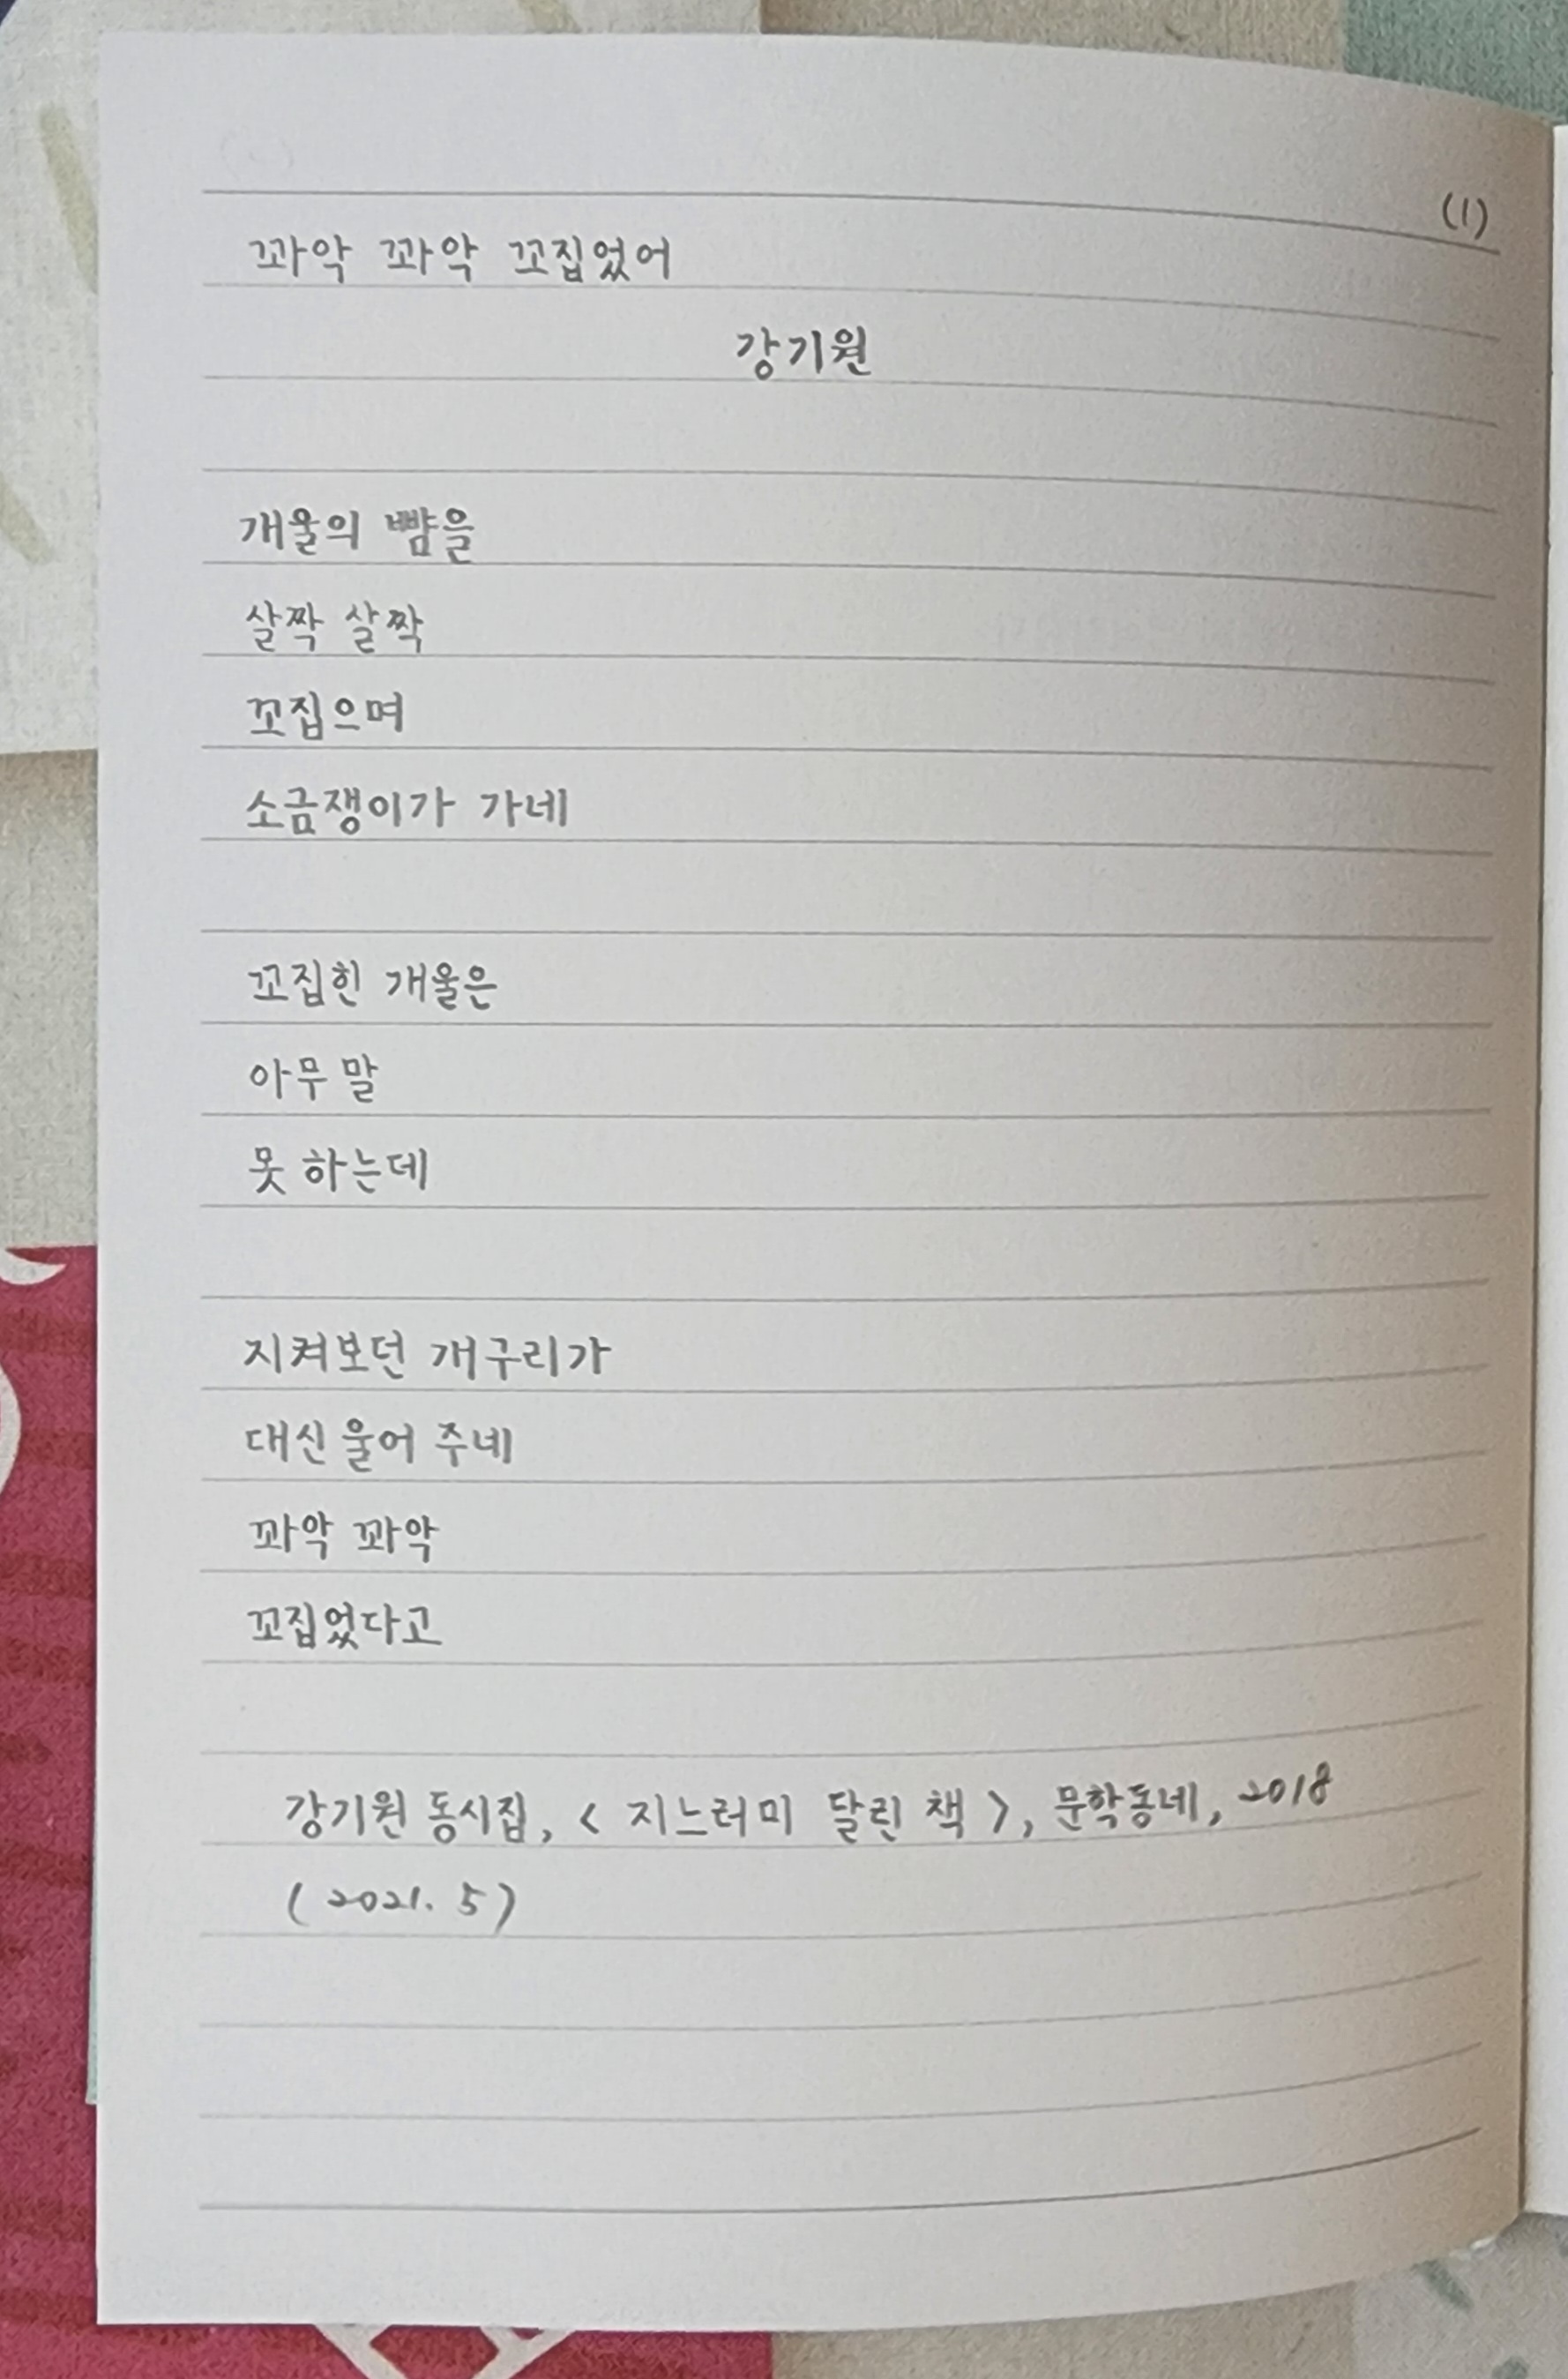 (1)
꽈악 꽈악 꼬집었어
강기원
개울의 뺨을
살짝 살짝
꼬집으며
소금쟁이가 가네
꼬집힌 개울은
아무 말
못 하는데
지켜보던 개구리가
대신 울어 주네
꽈악 꽈악
꼬집었다고
강기원 동시집, < 지느러미 달린 책 >, 문학동네, 2018
( 2021. 5 )